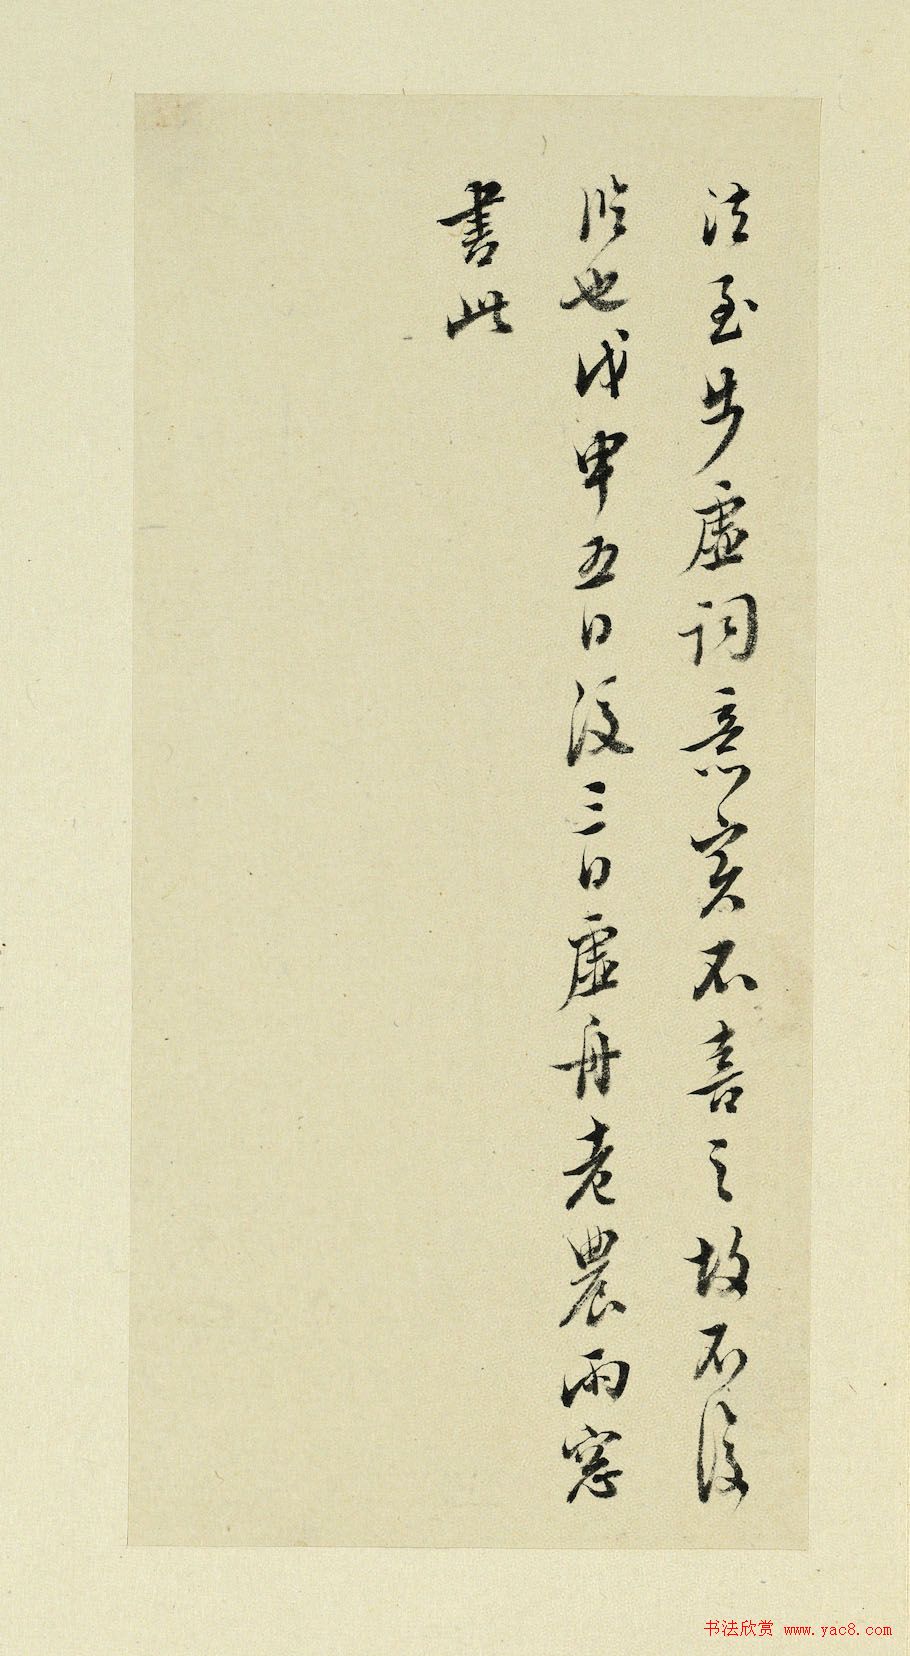 法至步虛詞意實不喜之故不復
臨也戊申五日後三日虛舟老農雨窓
書此
书法欣赏 www.yac8.com